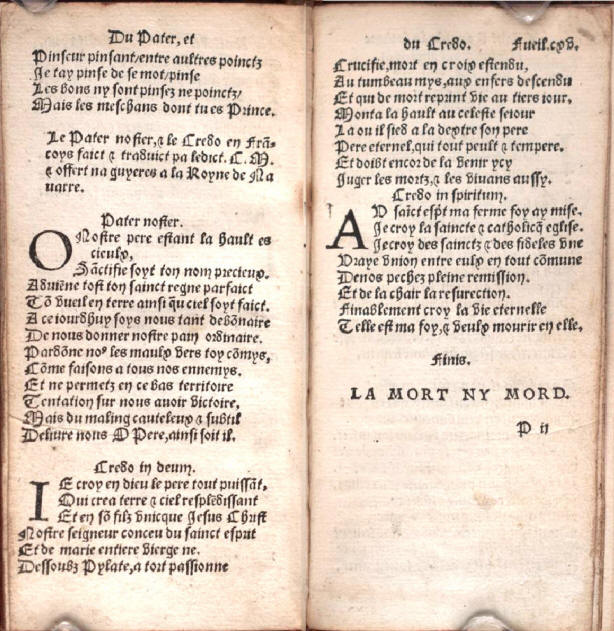 Du Pater, et
Pinseur pinsant/entre aultres poinctz
Je tay pinse de se mot/pinse
Les bons ny sont pinsez ne poinctz/
Mais les meschans dont tu es Prince.
Le Pater noster, ⁊ le Credo en Frã-
coys faict ⁊ traduict pa ledict. C. M.
⁊ offert na guyeres a la Royne de Na
uarre.
Pater noster.
O Nostre pere estant la hault es
cieulx,
Sãctifie soyt ton nom precieux.
Aduiẽne tost ton sainct regne parfaict
Tõ vueil en terre ainsi q̃u ciel soyt faict.
A ce iourdhuy soys nous tant debõnaire
De nous donner nostre pain ordinaire.
Pardõne noꝰ les maulx vers toy cõmys,
Cõme faisons a tous nos ennemys.
Et ne permetz en ce bas territoire
Tentation sur nous auoir victoire,
Mais du maling cauteleux ⁊ subtil
Deliure nous O Pere, ainsi soit il.
Credo in deum.
IE croy en dieu le pere tout puissãt,
Qui crea terre ⁊ ciel resplẽdissant
Et en sõ filz vnicque Jesus Christ
Nostre seigneur conceu du sainct esprit
Et de marie entiere vierge ne.
Dessoubz Pylate, a tort passionne
du Credo. Fueil.cxv.
Crucifie, mort en croix estendu,
Au tumbeau mys, aux enfers descendu
Et qui de mort reprint vie au tiers iour.
Monta la hault au celeste seiour
La ou il sied a la dextre son pere
Pere eternel, qui tout peult ⁊ tempere.
Et doibt encor de la venir ycy
Juger les mortz, ⁊ les viuans aussy.
Credo in spiritum.
AV sãct esp̃t ma ferme foy ay mise.
Je croy la saincte ⁊ catholicq̃ eglise.
Je croy des sainctz ⁊ des fideles vne
Vraye vnion entre eulx en tout cõmune
De nos pechez pleine remission.
Et de la chair la resurection.
Finablement croy la vie eternelle
Telle est ma foy, ⁊ veulx mourir en elle.
Finis.
LA MORT NY MORD.
P ii